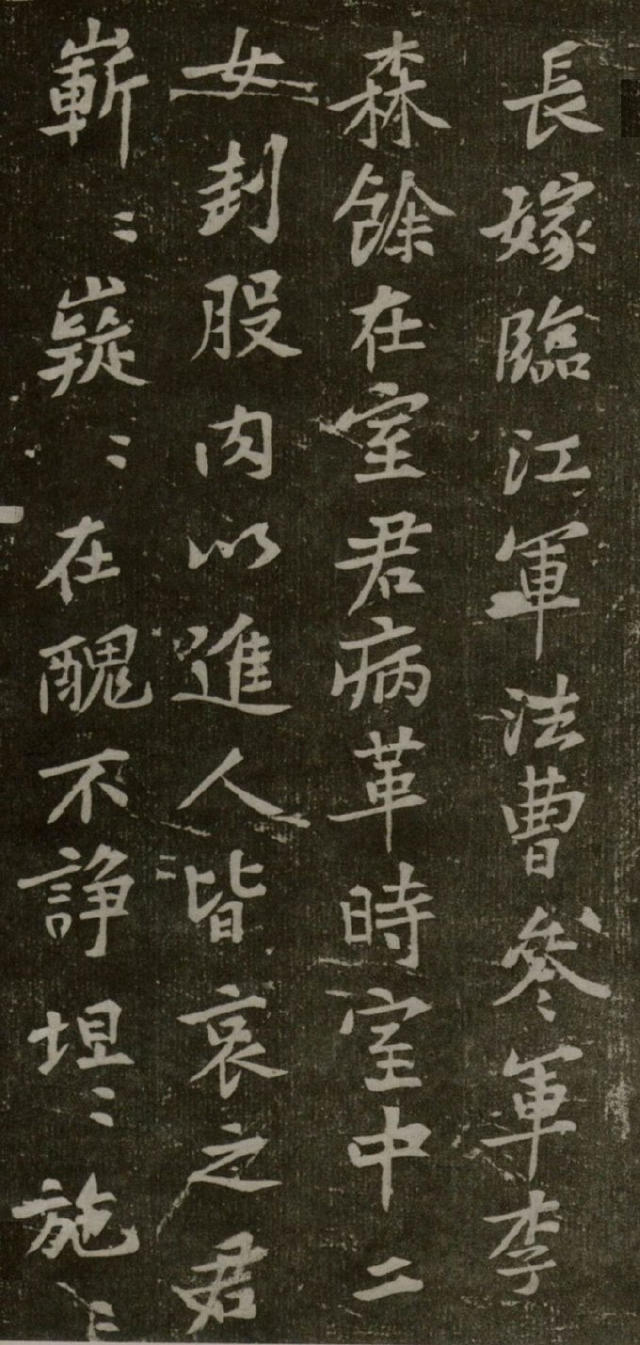 長嫁臨江軍法曹參軍李
森餘在室君病革時室中二
女刲股肉以進人皆哀之君
嶄〻嶷〻在醜不諍坦〻施〻